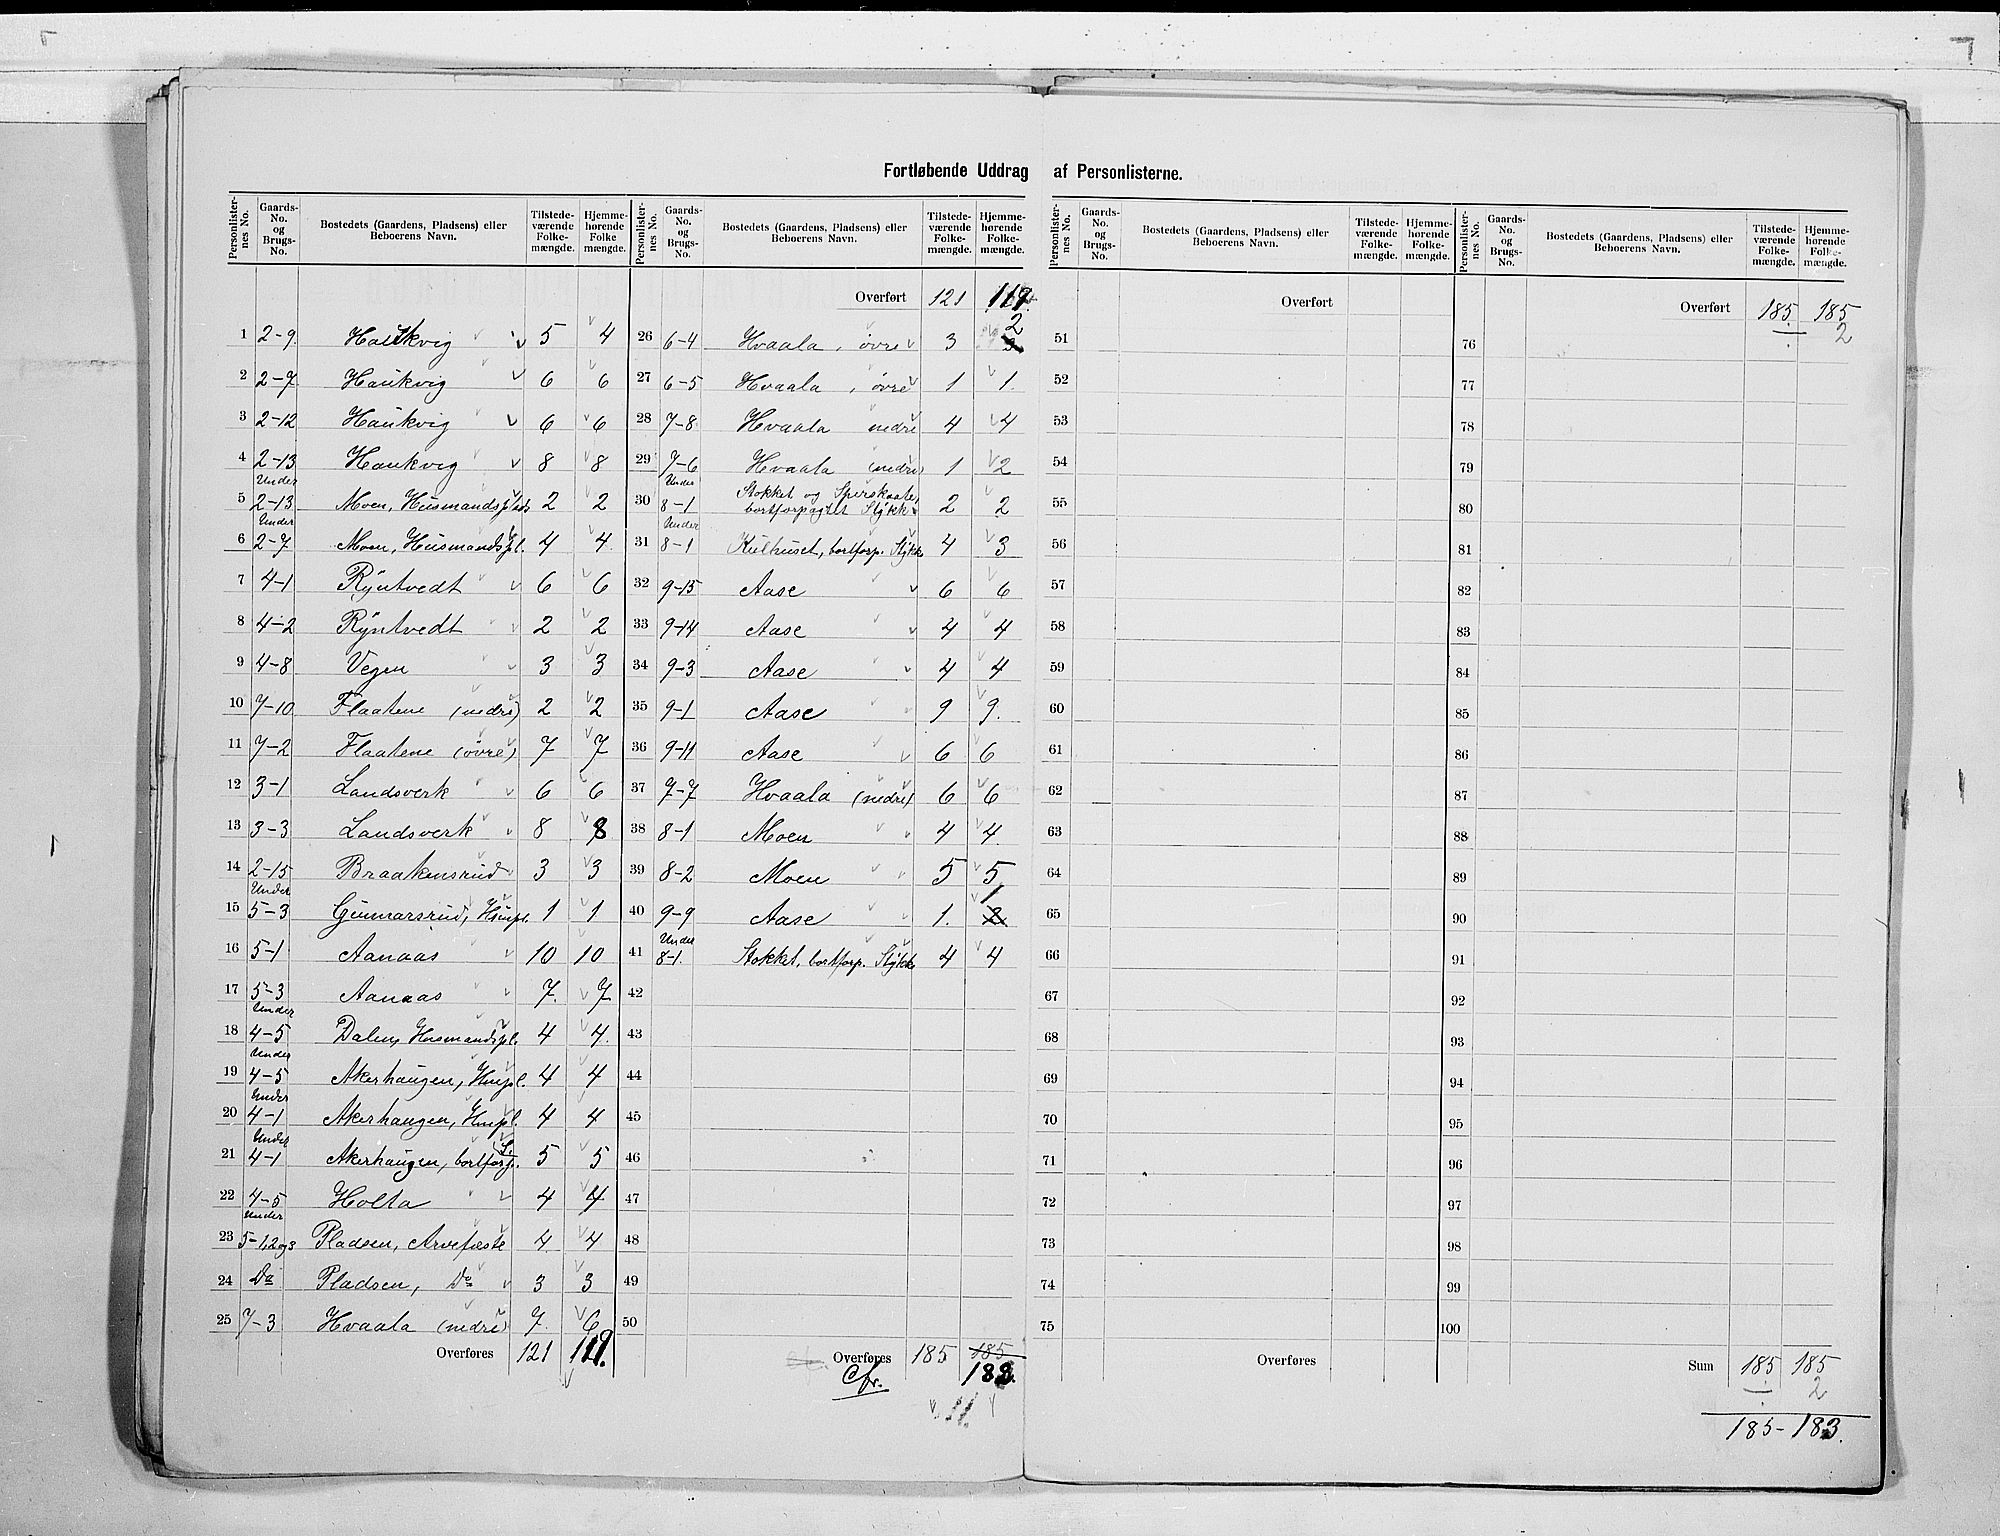 Fortløbende Uddrag af Personlisterne.
Personlister- nes No. | Gaards- No. og Brugs- No. | Bostedets (Gaardens, Pladsens) eller Beboerens Navn. | Tilstede- værende Folke- mængde. | Hjemme- hørende Folke mængde.
1 2-9 Haukvig 5 4
2 2-7 Haukvig 6 6
3 2-12 Haukvig 6 6
4 2-13 Haukvig 8 8
5 Under 2-13 Moen, Husmandsplads 2 2
6 Under 2-7 Moen, Husmandspl. 4 4.
7 4-1 Ryntvedt 6 6
8 4-2 Ryntvedt 2 2
9 4-8 Vegen 3 3
10 7-10 Flaatene (nedre) 2 2
11 7-2 Flaatene (øvre) 7 7
12 3-1 Landsverk 6 6
13 3-3 Landsverk 8 8
14 2-15 Braakensrud 3 3
15 Under 5-3 Gunnarsrud, Husmpl. 1 1
16 5-1 Aanaas 10 10
17 5-3 Aanaas 7. 7
18 Under 4-5 Dalen, Husmandspl. 4 4.
19 Under 4-5 Akerhaugen, Hmpl. 4 4
20 Under 4-1 Akerhaugen, Hmpl. 4 4
21 Under 4-1 Akerhaugen, bortforp. S. 5 5
22 4-5 Holta 4 4
23 Under 5-1,2 og 3 Pladsen, Arvefæste 4. 4
24 Do Pladsen, Do 3 3
25 7-3 Hvaala (nedre) 7. 6
Overføres 121 119.
Personlister- nes No. | Gaards- No. og Brugs- No. | Bostedets (Gaardens, Pladsens) eller Beboerens Navn. | Tilstede- værende Folke- mængde. | Hjemme- hørende Folke- mængde.
Overført 121 119.
26 6-4 Hvaala, øvre 3 2 3
27 6-5 Hvaala, øvre 1 1.
28 7-8 Hvaala nedre 4 4
29 7-6 Hvaala (nedre) 1 2
30 Under 8-1 Stokket og Sperskaate, bortforpagtet Stykke 2 2
31 Under 8-1 Kulhuset, bortforp. Stykke 4 3
32 9-15 Aase 6 6
33 9-14 Aase 4 4
34 9-3 Aase 4 4
35 9-1 Aase 9 9.
36 9-11 Aase 6 6
37 7-7 Hvaala (nedre) 6 6
38 8-1 Moen 4 4.
39 8-2 Moen 5 5
40 9-9 Aase 1. 1 2
41 Under 8-1. Stokket, bortforp. Stykke 4 4
42
43
44
45
46
47
48
49
50
Overføres 185 185
Cfr. 183.
11.
Personlister- nes No. | Gaards- No. og Brugs- No. | Bostedets (Gaardens, Pladsens) eller Beboerens Navn. | Tilstede- værende Folke- mængde. | Hjemme- hørende Folke- mængde.
Overført
51
52
53
54
55
56
57
58
59
60
61
62
63
64
65
66
67
68
69
70
71
72
73
74
75
Overføres
Personlister- nes No. | Gaards- No. og Brugs- No. | Bostedets (Gaardens, Pladsens) eller Beboerens Navn. | Tilstede- værende Folke- mængde. | Hjemme- hørende Folke- mængde.
Overført 185 185
2
76
77
78
79
80
81
82
83
84
85
86
87
88
89
90
91
92
93
94
95
96
97
98
99
100
Sum 185 185
2
185 - 183.